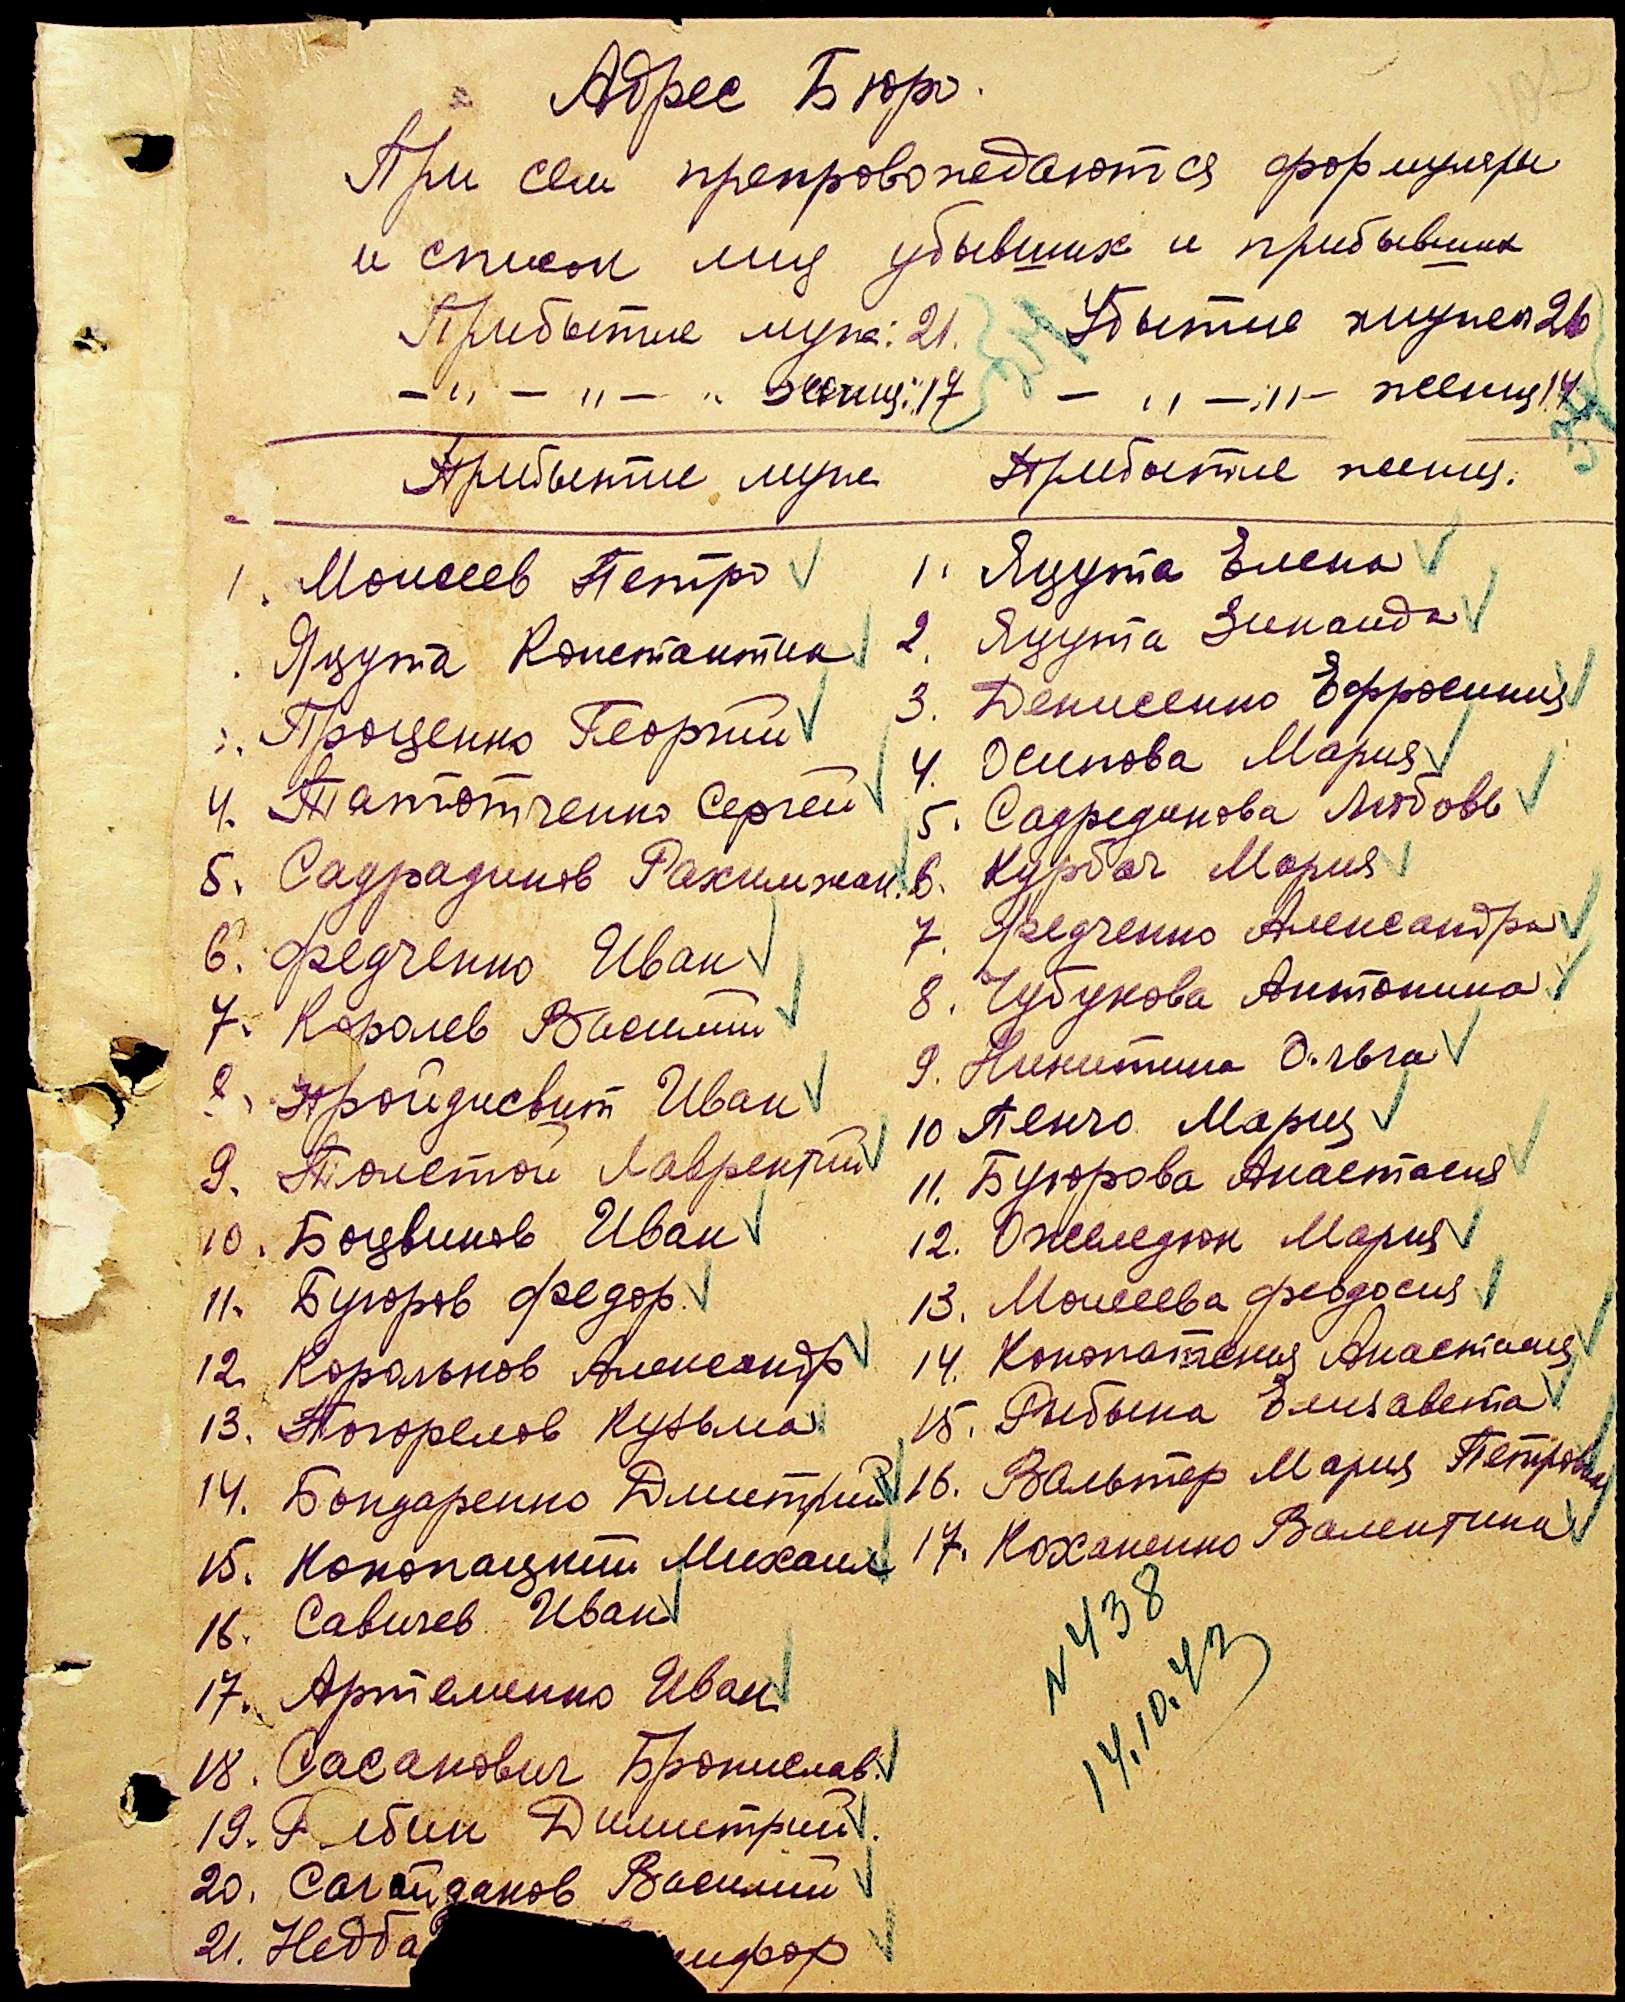 Адрес Бюро.
При сем препровождаются формуляры
и список лиц убывших и прибывших
Прибытие мужч: 21. Убытие мужчен 26
— „ — „ — „ женщ: 17 — „ — „ — женщ 17
Прибытие муж Прибытие женщ.
1. Моисеев Петро
Яцута Константин
Проценко Георгий
4. Татотченко Сергей
5. Садрадинов Рахимжан
6. Федченко Иван
7. Королев Василий
8. Пройдисвит Иван
9. Толстой Лаврентий
10. Боцвинов Иван
11. Бугоров Федор.
12. Корольков Александр
13. Погорелов Кузьма
14. Бондаренко Дмитрий
15. Конопацкий Михаил
16. Савичев Иван
17. Артеменко Иван
18. Сасанович Бронислав.
19. Р бин Димитрий.
20. Сагайдаков Василий
21. Недба ифор
1. Яцута Елена
2. Яцута Зинаида
3. Денисенко Ефросиния
4. Осипова Мария
5. Садрединова Любовь
6. Курбач Мария
7. Федченко Александра
8. Чубукова Антонина
9. Никитина Ольга
10 Пенчо Мария
11. Бугорова Анастасия
12. Ожеледюк Мария
13. Моисеева Феодосия
14. Конопатская Анастасия
15. Рыбына Елизавета
16. Вальтер Мария Петровна
17. Коханенко Валентина
N 438
14.10.43